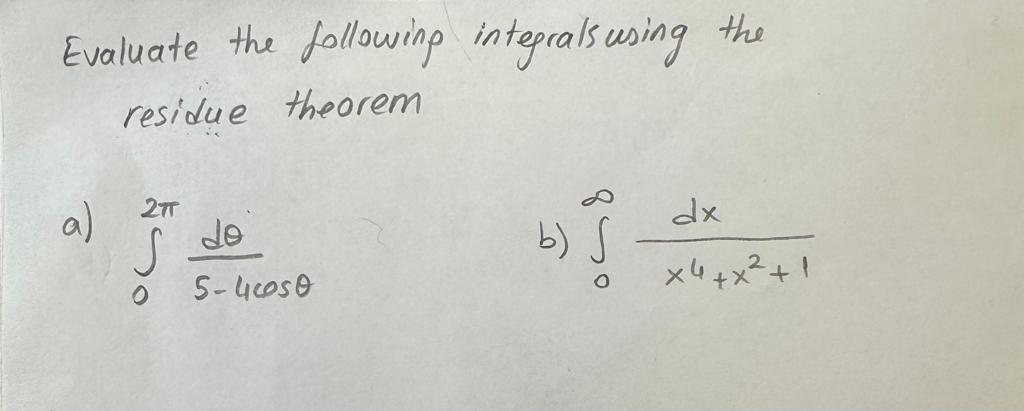 Evaluate the following integrals using the
residue theorem
a) ∫₀^2π dθ / (5-4cosθ)
b) ∫₀^∞ dx / (x⁴+x²+1)